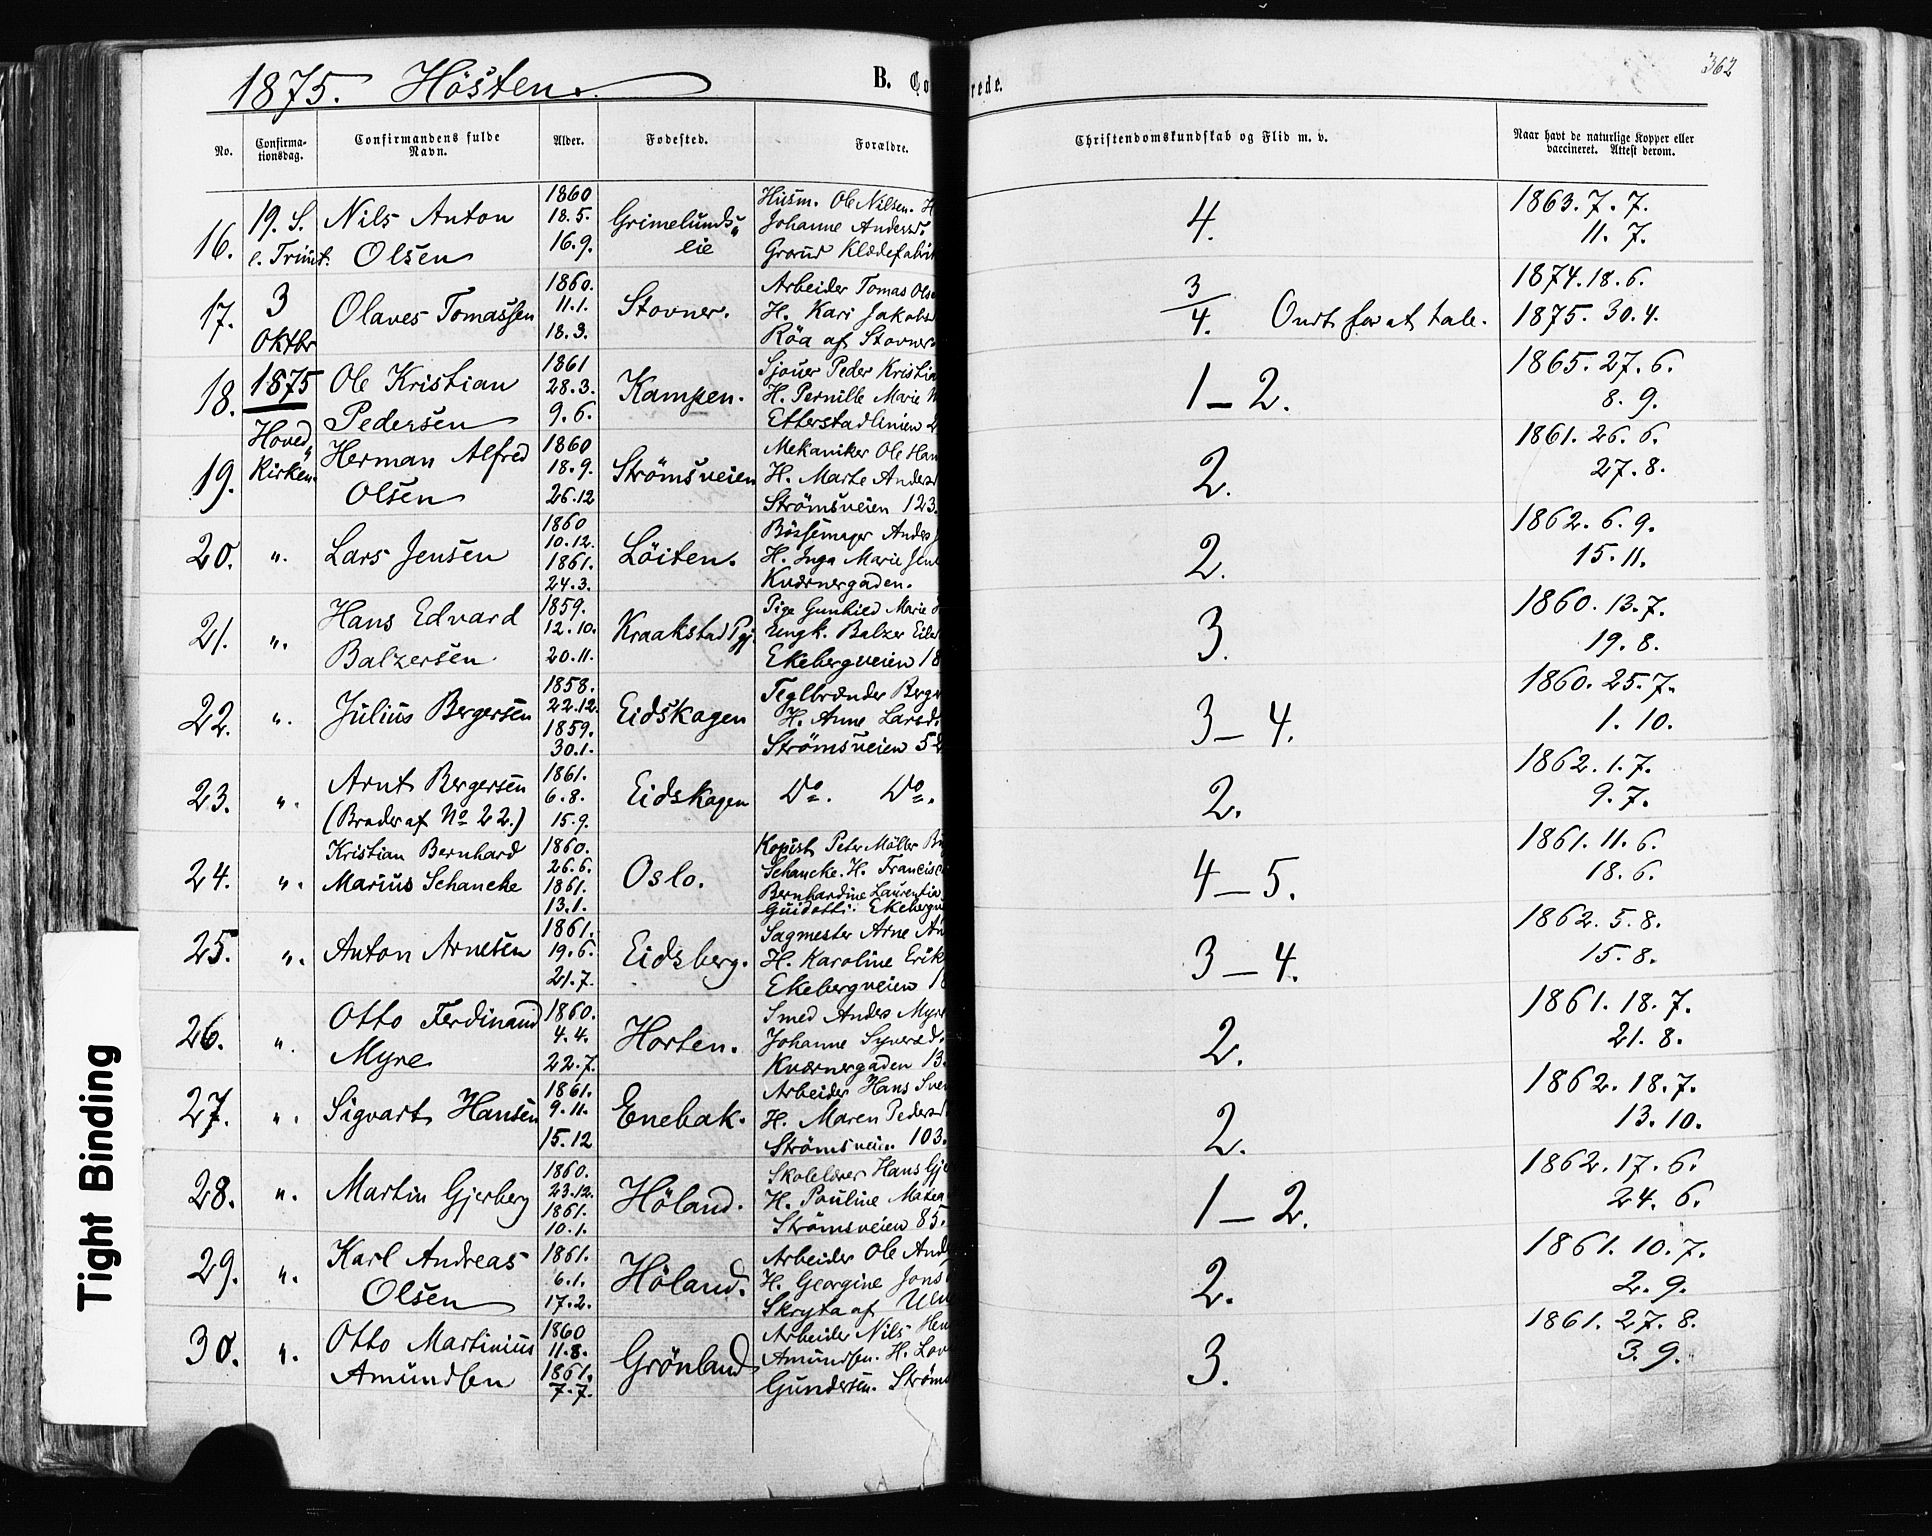 1875. Hösten.
B. Co
rede.
362
No.
Confirma-
tionsdag.
Confirmandens fulde
Navn.
Alder.
Fødested.
Forældre.
Christendomskundskab og Flid m. v.
Naar havt de naturlige Kopper eller
vaccineret. Attest derom.
16.
19. S.
e. Trinit.
Nils Anton
Olsen
1860
18.5.
16.9.
Grimelunds„
eie
Husm. Ole Nilsen. H
Johanne Andersd.
Grorud Klædefabrik
4.
1863. 7. 7.
11. 7.
17.
3
Oktbr
Olaves Tomassen
1860.
11.1.
18.3.
Stovner.
Arbeider Tomas Ols
H. Kari Jakobs
Röa af Stovner
3/4. Ondt for at tale.
1874. 18. 6.
1875. 30. 4.
18.
1875
Ole Kristian
Pedersen
1861
28.3.
9.6.
Kampen.
Sjouer Peder Kristia
H. Pernille Marie
Etterstadlinien 2
1 – 2.
1865. 27. 6.
8. 9.
19.
Hoved„
Kirken.
Herman Alfred
Olsen
1860
18.9.
26.12
Strömsveien
Mekaniker Ole Han
H. Marte Anders
Strömsveien 123.
2.
1861. 26. 6.
27. 8.
20.
„.
Lars Jensen
1860
10.12.
1861.
24.3.
Löiten.
Bössemager Andes
H. Inga Marie Jen
Kværnergaden.
2.
1862. 6. 9.
15. 11.
21.
„.
Hans Edvard
Balzersen
1859.
12.10.
20.11.
Kraakstad Pgj.
Pige Gunhild Marie
Ungk. Balzer Eil
Ekebergveien 18
3.
1860. 13. 7.
19. 8.
22.
„.
Julius Bergersen
1858.
22.12.
1859.
30.1.
Eidskogen
Teglbrænder Berger
H. Anne Larsd.
Strömsveien 5
3 – 4.
1860. 25. 7.
1. 10.
23.
„.
Arnt Bergersen
(Broder af No 22.)
1861.
6.8.
15.9.
Eidskogen
Do. Do.
2.
1862. 1. 7.
9. 7.
24.
„.
Kristian Bernhard
Marius Schancke
1860.
26.6.
1861.
13.1.
Oslo.
Kopist Peter Möller
Schancke. H. Francisc
Bernhardine Laurentia
Guidotti. Ekeberg
4 – 5.
1861. 11. 6.
18. 6.
25.
„.
Anton Arnesen
1861.
19.6.
21.7.
Eidsberg.
Sagmester Arne An
H. Karoline Erik
Ekebergveien 1
3 – 4.
1862. 5. 8.
15. 8.
26.
„.
Otto Ferdinand
Myre
1860.
4.4.
22.7.
Horten.
Smed Anders Myre
Johanne Syversd.
Kværnergaden 13.
2.
1861. 18. 7.
21. 8.
27.
„.
Sigvart Hansen
1861.
9.11.
15.12
Enebak.
Arbeider Hans Sve
H. Maren Peders
Strömsveien 103.
2.
1862. 18. 7.
13. 10.
28.
„.
Martin Gjerberg
1860.
23.12.
1861.
10.1.
Höland.
Skolelærer Hans Gje
H. Pauline Matea
Strömsveien 85.
1 – 2.
1862. 17. 6.
24. 6.
29.
„.
Karl Andreas
Olsen
1861.
6.1.
17.2.
Höland.
Arbeider Ole And
H. Georgine Jons
Skryta af Ulv
2.
1861. 10. 7.
2. 9.
30.
„.
Otto Martinius
Amundsen
1860
11.8.
1861.
7.7.
Grönland
Arbeider Nils Hen
Amundsen. H. Lov
Gundersen. Ströms
3.
1861. 27. 8.
3. 9.
Tight Binding